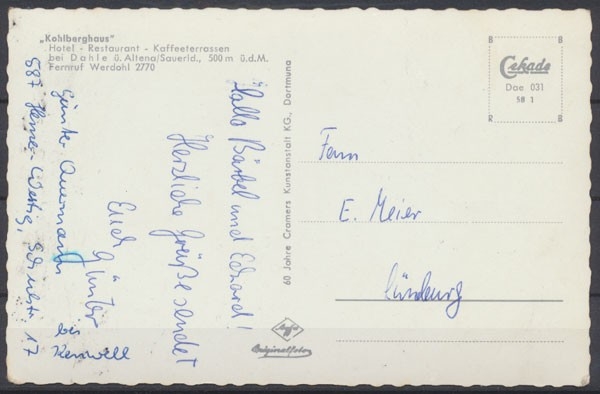 „Kohlberghaus"
Hotel - Restaurant - Kaffeeterrassen
bei Dahle ü. Altena/Sauerld., 500 m ü.d.M.
Fernruf Werdohl 2770
Hallo Bärbel und Eckard!
Herzliche Grüße sendet
Euch Günter
Günter
bei
587 Hemer-Westig, Schulstr. 17
60 Jahre Cramers Kunstanstalt KG., Dortmund
Agfa
Originalfoto
Cekade
Dae 031
58 1
B B
R B
Fam
E. Meier
Lüneburg